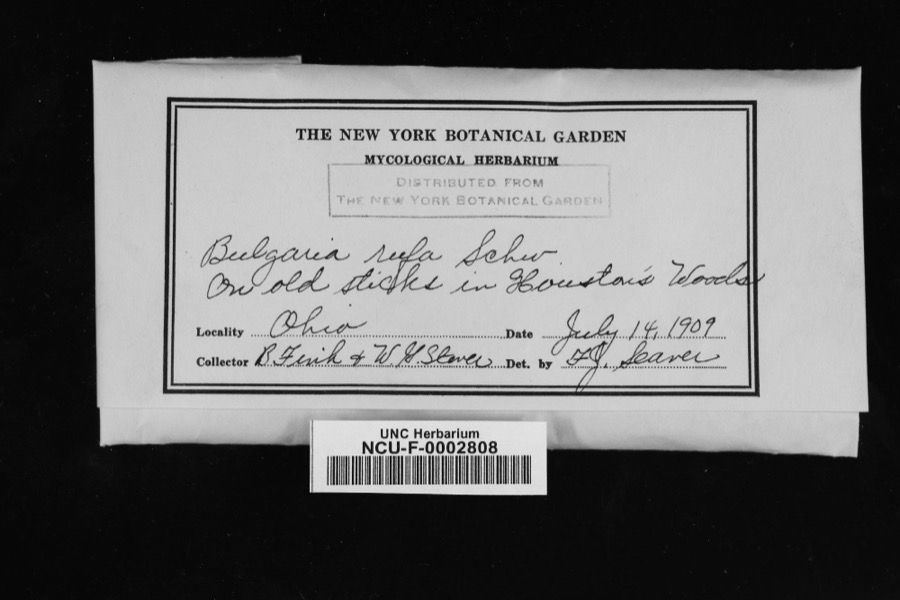 THE NEW YORK BOTANICAL GARDEN
MYCOLOGICAL HERBARIUM
DISTRIBUTED FROM
THE NEW YORK BOTANICAL GARDEN
Bulgaria rufa Schw
On old sticks in Houston's Woods
Locality Ohio Date July 14, 1909
Collector B. Fink & W. G. Stover Det. by F.J. Seaver
UNC Herbarium
NCU-F-0002808